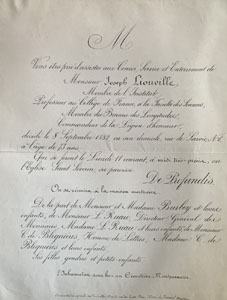 M
Vous êtes prié d'assister aux Convoi, Service et Enterrement de
Monsieur Joseph Liouville
Membre de l'Institut
Professeur au Collège de France, à la Faculté des Sciences,
Membre du Bureau des Longitudes,
Commandeur de la Légion d'honneur,
décédé le 8 Septembre 1882 en son domicile, rue de Savoie, N° 6
à l'âge de 73 ans.
Qui se feront le Lundi 11 courant, à midi très-précis, en
l'Église Saint Séverin, sa paroisse.
De Profundis.
On se réunira à la maison mortuaire.
De la part de Monsieur et Madame et leurs
enfants, de Monsieur L. Ruau, Directeur Général des
Monnaies, Madame L. Ruau et leurs enfants, de Monsieur
C. de Blignières, Homme de Lettres, Madame C. de
Blignières et leurs enfants.
Ses filles, gendres et petits-enfants.
L'Inhumation aura lieu au Cimetière Montparnasse.